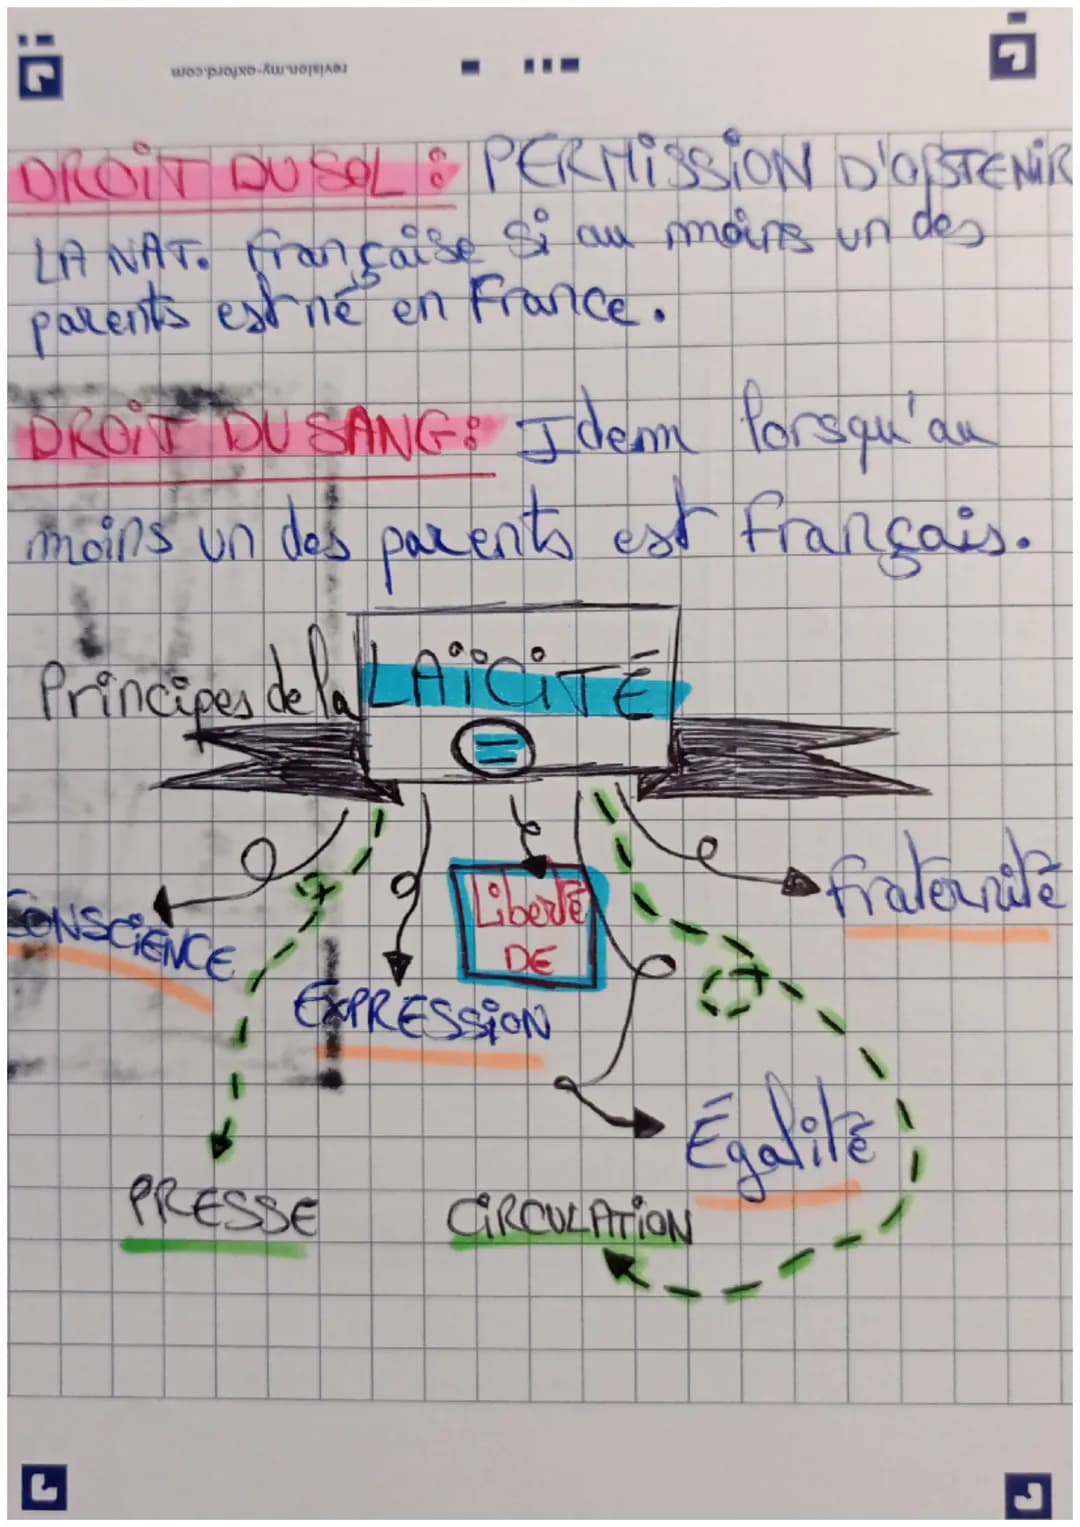 revision.my-oxford.com
DROIT DU SOL : PERMISSION D'OBTENIR
LA NAT. française si au moins un des
parents est né en France.
DROIT DU SANG : Idem lorsqu'au
moins un des parents est français.
Principes de la LAÏCITÉ
Liberté
DE
fraternité
CONSCIENCE
EXPRESSION
Égalité
PRESSE
CIRCULATION